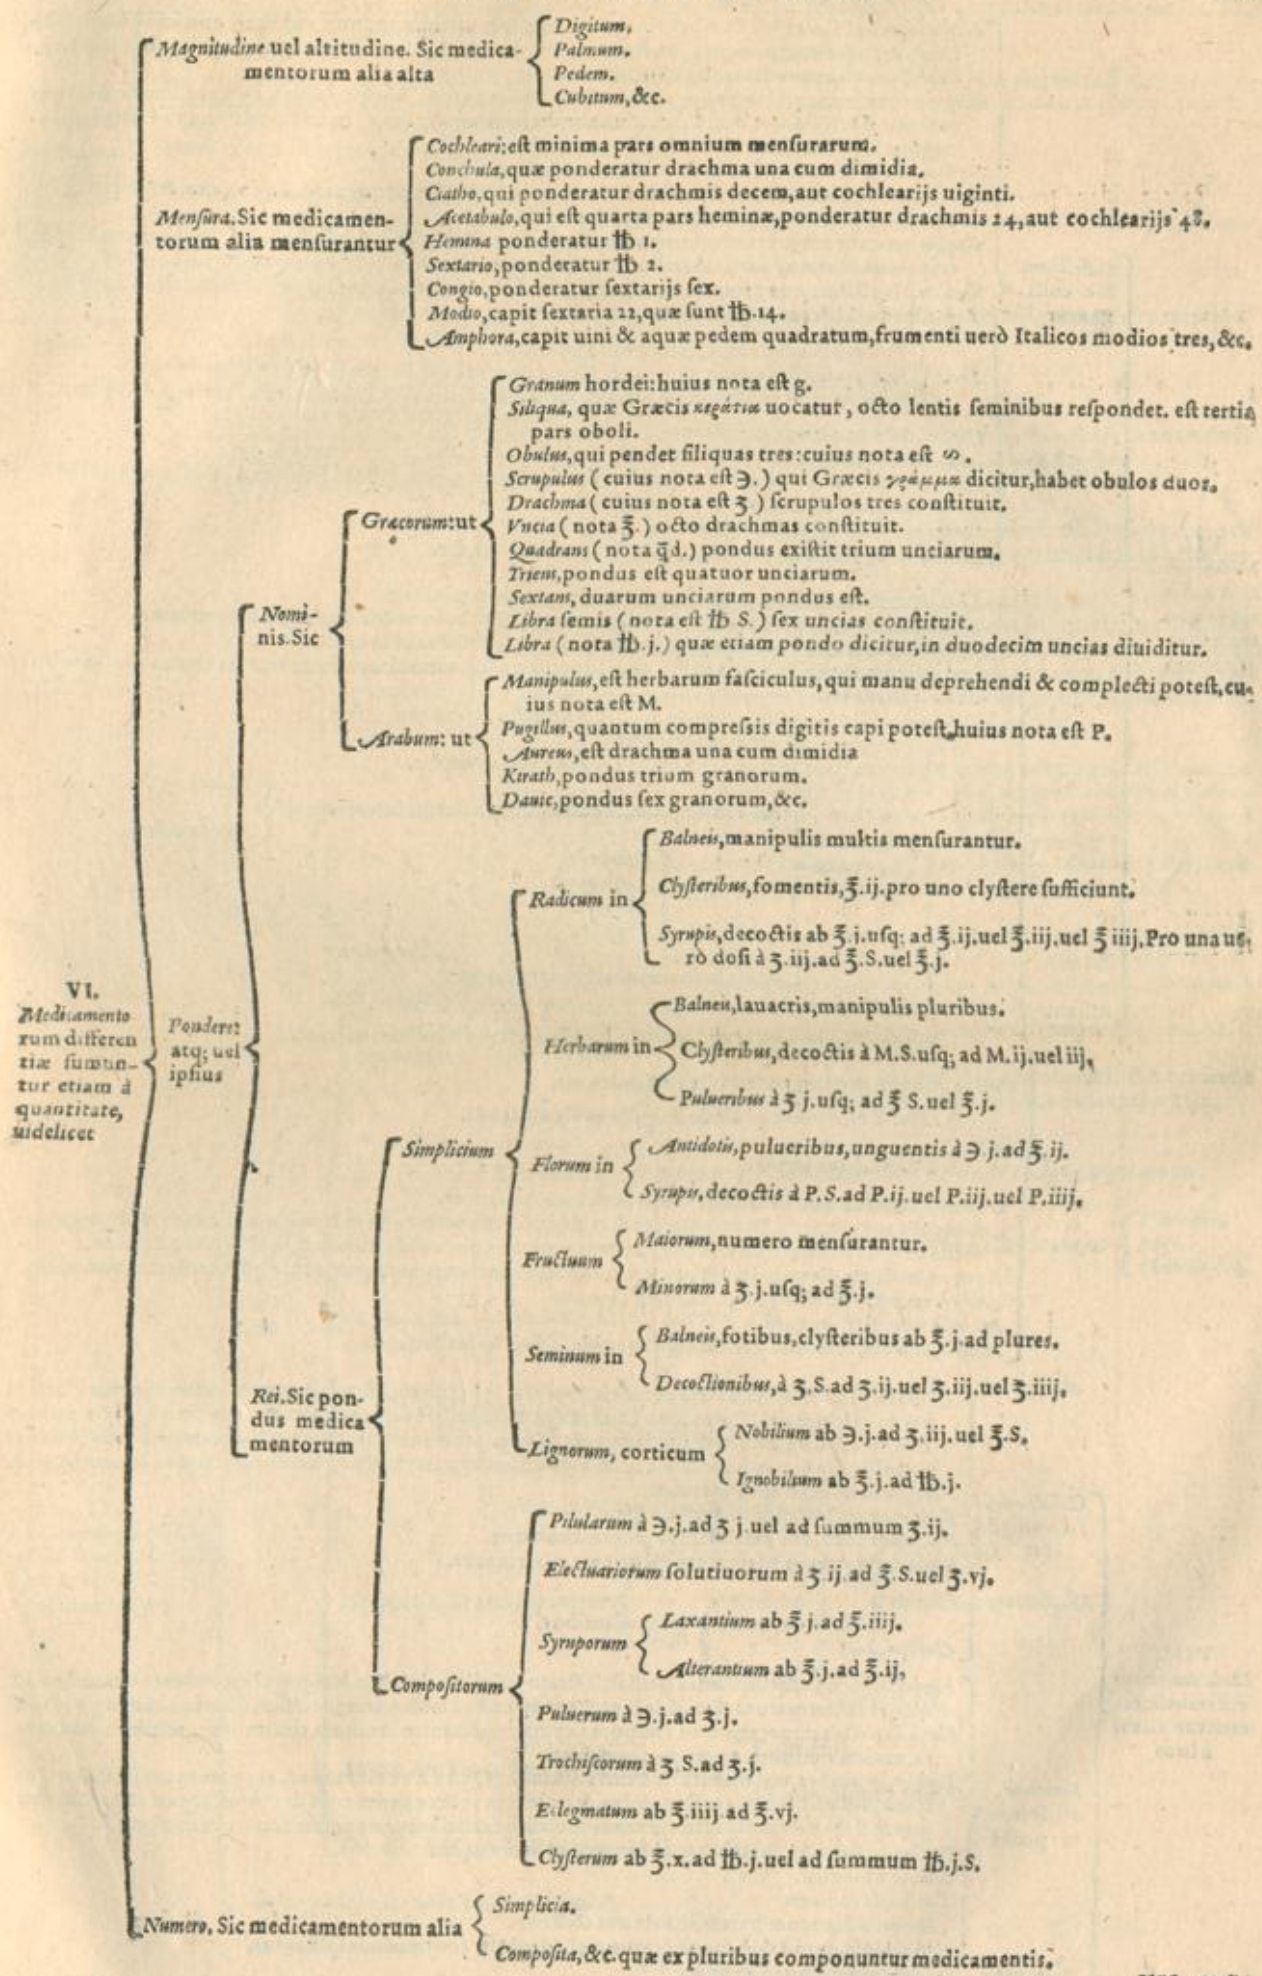 Magnitudine uel altitudine. Sic medica-
mentorum alia alta
Digitum.
Palmum.
Pedem.
Cubitum, &c.
Mensura. Sic medicamen-
torum alia mensurantur
Cochleari: est minima pars omnium mensurarum.
Conchula, quæ ponderatur drachma una cum dimidia.
Ciatho, qui ponderatur drachmis decem, aut cochlearijs uiginti.
Acetabulo, qui est quarta pars heminæ, ponderatur drachmis 24, aut cochlearijs 48.
Hemina ponderatur ℔ 1.
Sextario, ponderatur ℔ 2.
Congio, ponderatur sextarijs sex.
Modio, capit sextaria 22, quæ sunt ℔. 14.
Amphora, capit uini & aquæ pedem quadratum, frumenti uerò Italicos modios tres, &c.
VI.
Medicamento
rum differen
tiæ sumun-
tur etiam à
quantitate,
uidelicet
Pondere:
atq; uel
ipsius
Nomi-
nis. Sic
Græcorum: ut
Granum hordei: huius nota est g.
Siliqua, quæ Græcis κεράτια uocatur, octo lentis seminibus respondet. est tertia
pars oboli.
Obulus, qui pendet siliquas tres: cuius nota est ᔕ.
Scrupulus ( cuius nota est ℈. ) qui Græcis γράμμα dicitur, habet obulos duos.
Drachma ( cuius nota est ʒ ) scrupulos tres constituit.
Vncia ( nota ℥. ) octo drachmas constituit.
Quadrans ( nota q̄d. ) pondus existit trium unciarum.
Triens, pondus est quatuor unciarum.
Sextans, duarum unciarum pondus est.
Libra semis ( nota est ℔ S. ) sex uncias constituit.
Libra ( nota ℔. j. ) quæ etiam pondo dicitur, in duodecim uncias diuiditur.
Arabum: ut
Manipulus, est herbarum fasciculus, qui manu deprehendi & complecti potest, cu-
ius nota est M.
Pugillus, quantum compressis digitis capi potest, huius nota est P.
Aureus, est drachma una cum dimidia
Kirath, pondus trium granorum.
Danic, pondus sex granorum, &c.
Rei. Sic pon-
dus medica
mentorum
Simplicium
Radicum in
Balneis, manipulis multis mensurantur.
Clysteribus, fomentis, ℥. ij. pro uno clystere sufficiunt.
Syrupis, decoctis ab ℥. j. usq; ad ℥. ij. uel ℥. iij. uel ℥ iiij. Pro una ue-
rò dosi à ʒ. iij. ad ℥. S. uel ℥. j.
Herbarum in
Balneis, lauacris, manipulis pluribus.
Clysteribus, decoctis à M. S. usq; ad M. ij. uel iij.
Pulueribus à ʒ j. usq; ad ℥ S. uel ℥. j.
Florum in
Antidotis, pulueribus, unguentis à ℈ j. ad ℥. ij.
Syrupis, decoctis à P. S. ad P. ij. uel P. iij. uel P. iiij.
Fructuum
Maiorum, numero mensurantur.
Minorum à ʒ. j. usq; ad ℥. j.
Seminum in
Balneis, fotibus, clysteribus ab ℥. j. ad plures.
Decoctionibus, à ʒ. S. ad ʒ. ij. uel ʒ. iij. uel ʒ. iiij.
Lignorum, corticum
Nobilium ab ℈. j. ad ʒ. iij. uel ℥. S.
Ignobilium ab ℥. j. ad ℔. j.
Compositorum
Pilularum à ℈. j. ad ʒ j. uel ad summum ʒ. ij.
Electuariorum solutiuorum à ʒ ij. ad ℥. S. uel ʒ. vj.
Syruporum
Laxantium ab ℥ j. ad ℥. iiij.
Alterantium ab ℥. j. ad ℥. ij,
Puluerum à ℈. j. ad ʒ. j.
Trochiscorum à ʒ S. ad ʒ. j.
Eclegmatum ab ℥. iiij ad ℥. vj.
Clysterum ab ℥. x. ad ℔. j. uel ad summum ℔. j. S.
Numero. Sic medicamentorum alia
Simplicia.
Composita, &c. quæ ex pluribus componuntur medicamentis.